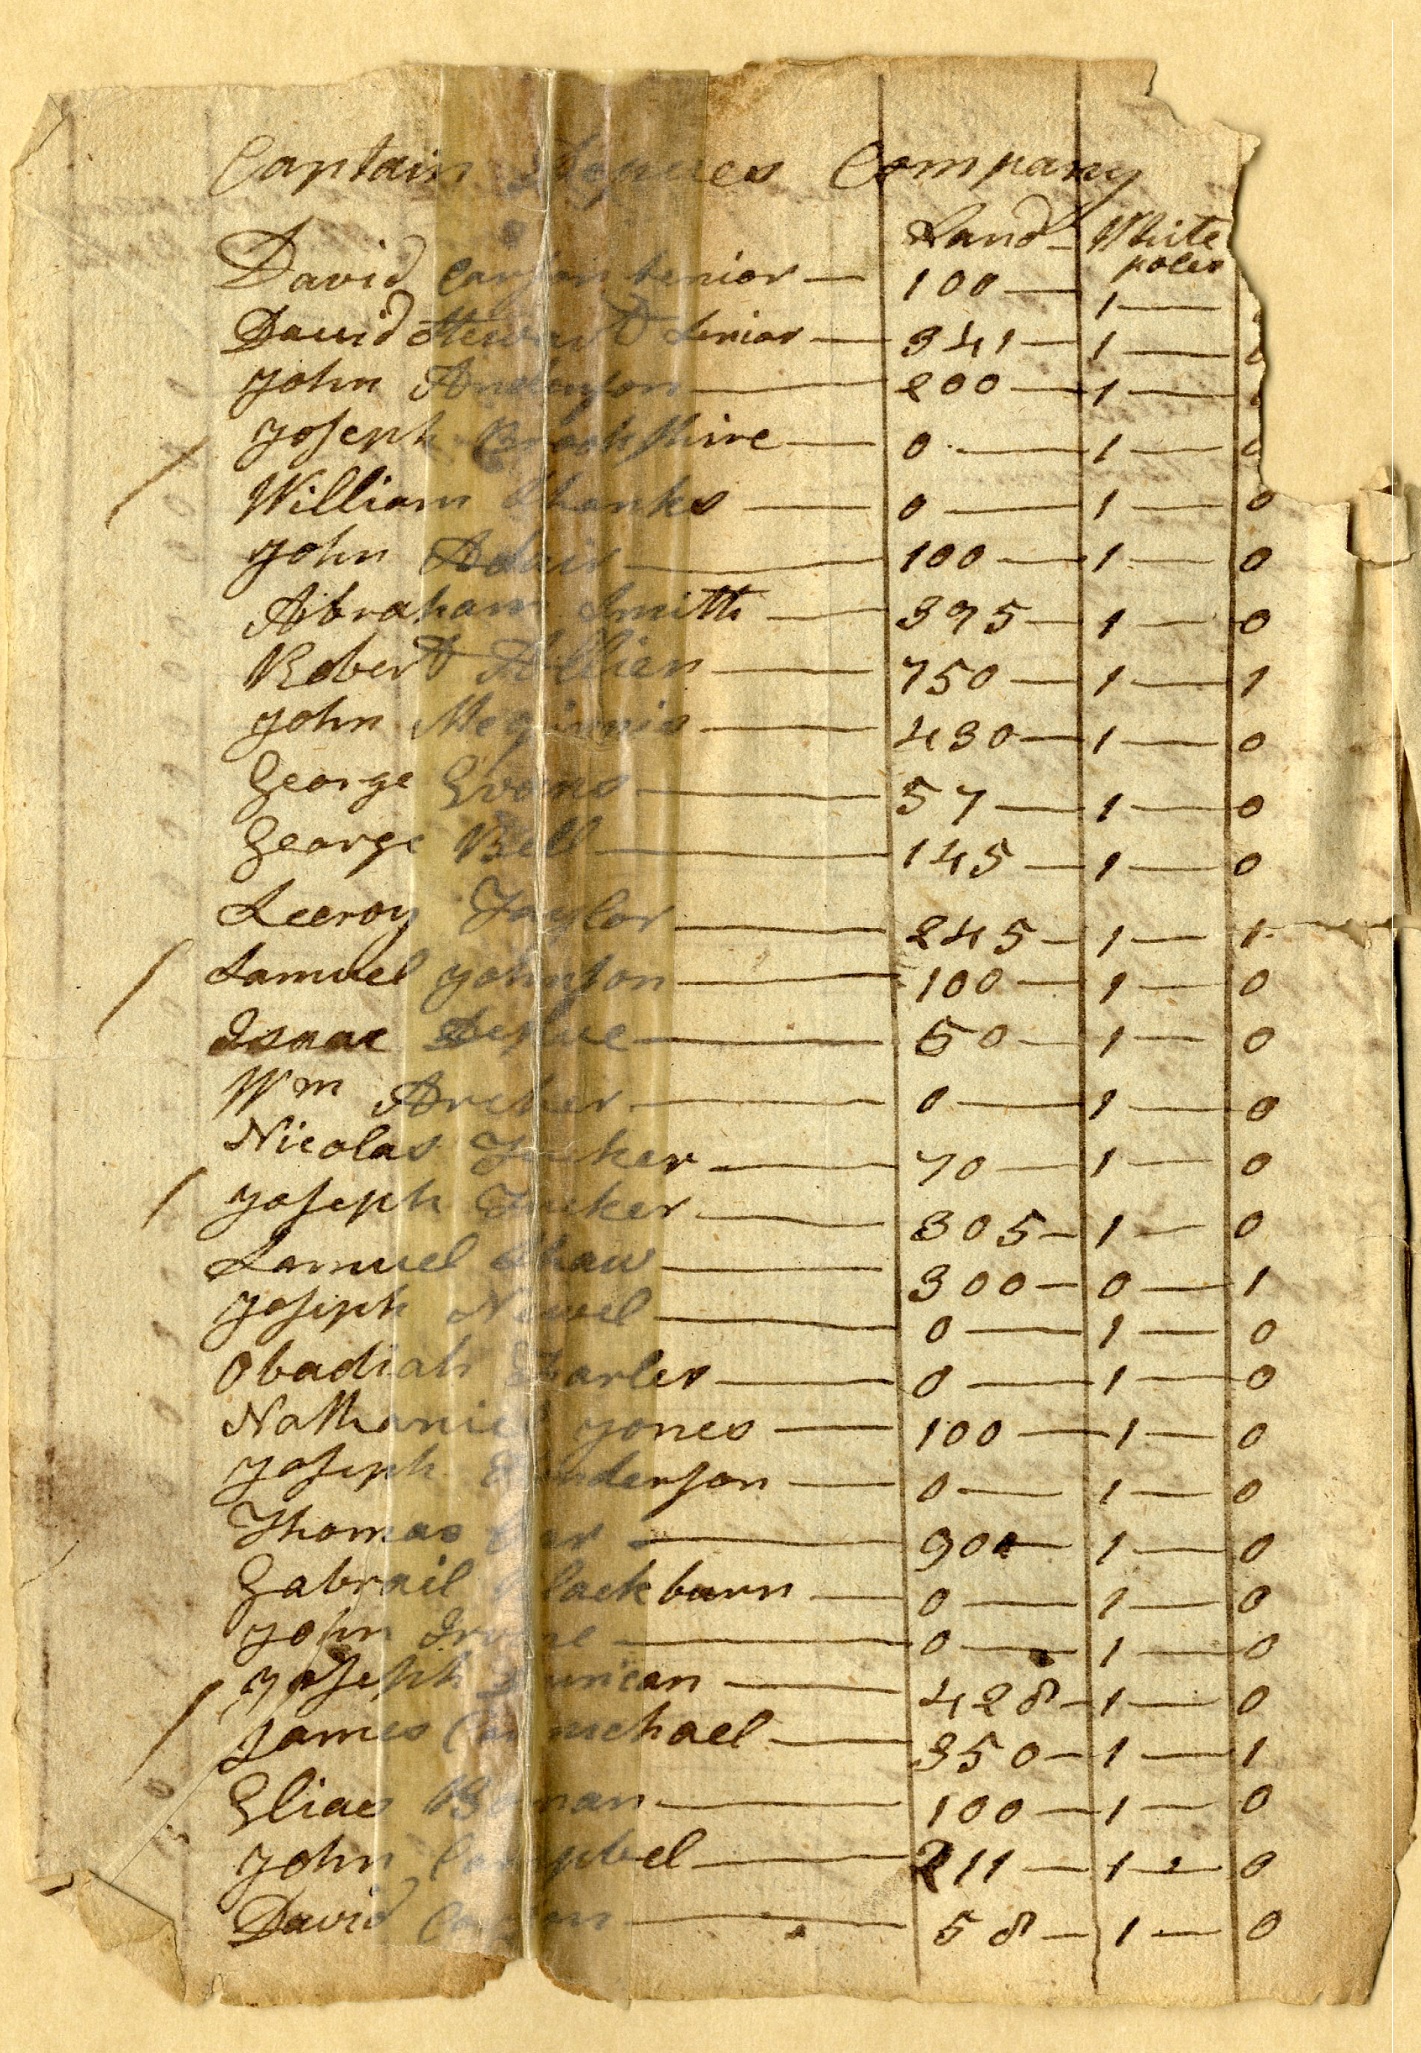 Captain Company
Land White
poles
David Carson Senior — 100 — 1 —
David Stewart Senior — 341 — 1 —
John Anderson — 200 — 1 —
Joseph Brookshire — 0 — 1 —
William Shanks — 0 — 1 — 0
John Adair — 100 — 1 — 0
Abraham Smith — 395 — 1 — 0
Robert Allien — 750 — 1 — 1
John Meginnis — 430 — 1 — 0
George Evans — 57 — 1 — 0
George Bell — 145 — 1 — 0
Leeroy Taylor — 245 — 1 — 1
Samuel Johnson — 100 — 1 — 0
Isaac — 50 — 1 — 0
Wm Archer — 0 — 1 — 0
Nicolas Tucker — 70 — 1 — 0
Joseph Tucker — 305 — 1 — 0
Samuel Shaw — 300 — 0 — 1
Joseph Newel — 0 — 1 — 0
Obadiah — 0 — 1 — 0
Nathaniel Jones — 100 — 1 — 0
Joseph Henderson — 0 — 1 — 0
Thomas — 900 — 1 — 0
Gabrail Blackburn — 0 — 1 — 0
John Irvine — 0 — 1 — 0
Joseph Duncan — 428 — 1 — 0
James Carmichael — 350 — 1 — 1
Elias — 100 — 1 — 0
John Campbel — 211 — 1 — 0
David Carson — 58 — 1 — 0